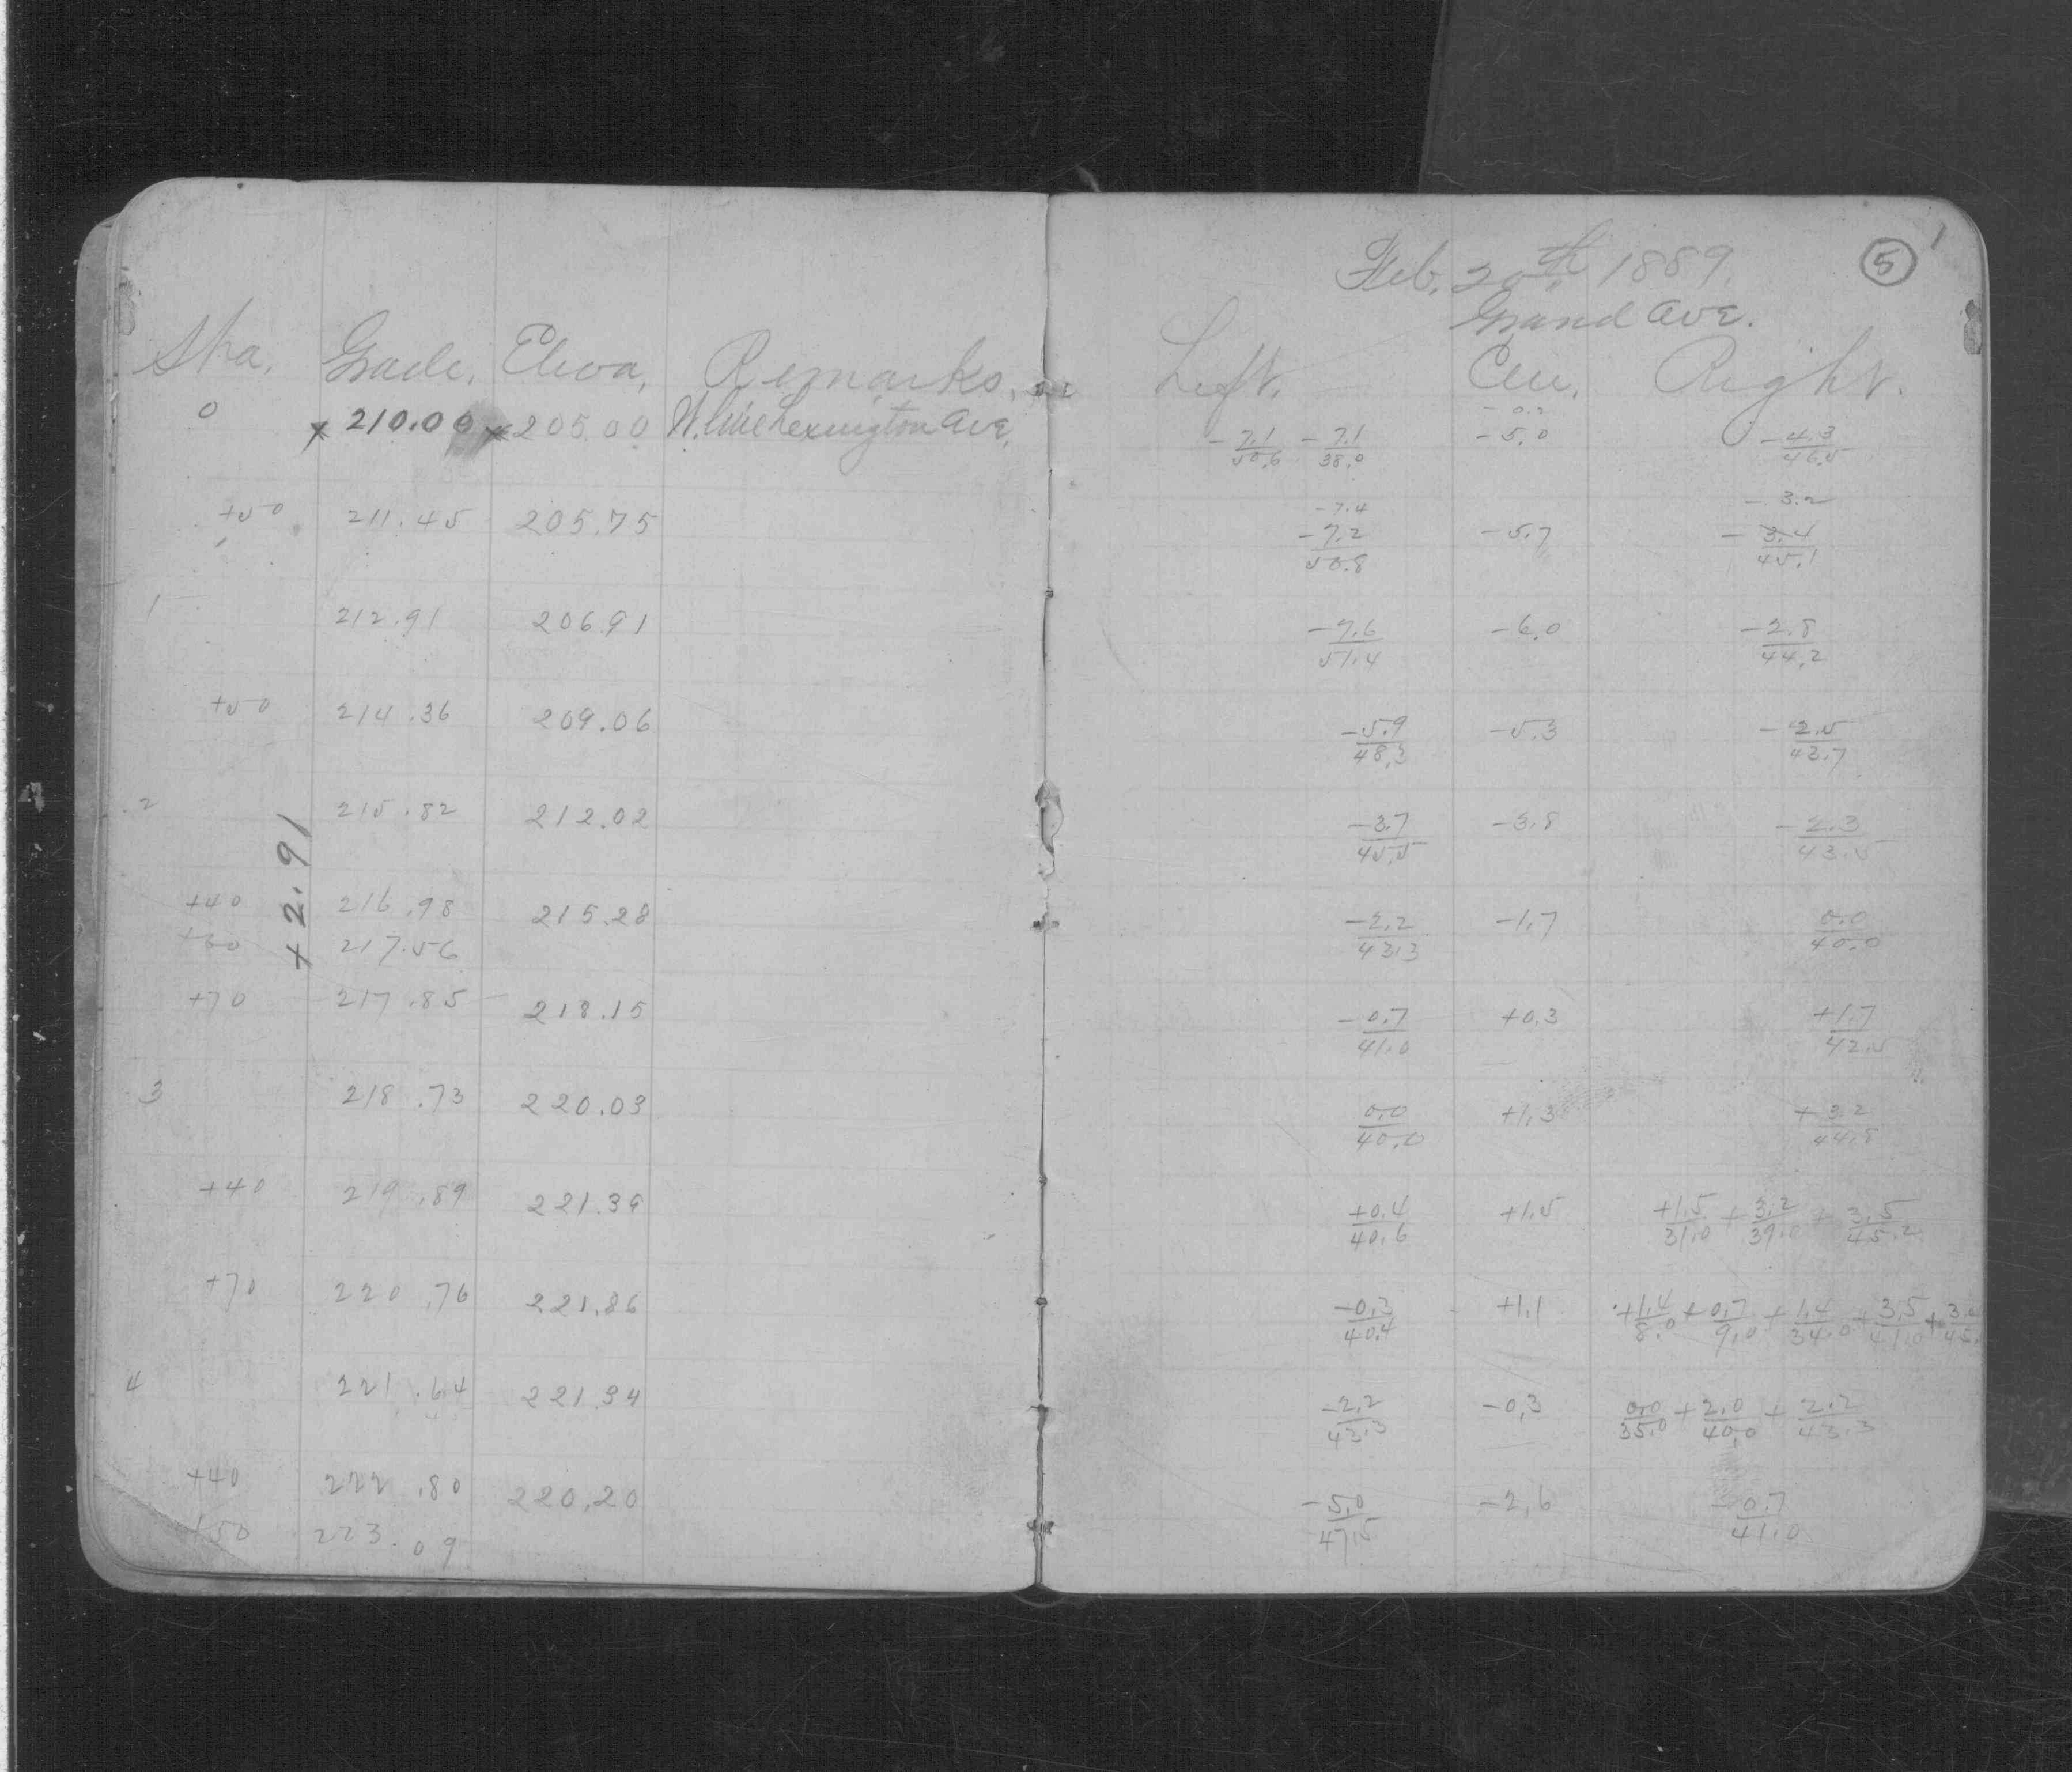 Sta. Grade. Eleva. Remarks.
0 x 210.00 x 205.00 W. line Lexington Ave.
+50 211.45 205.75
1 212.91 206.91
+50 214.36 209.06
2 215.82 212.02
+2.91
+40 216.98 215.28
+60 217.56
+70 217.85 218.15
3 218.73 220.03
+40 219.89 221.39
+70 220.76 221.86
4 221.64 221.34
+40 222.80 220.20
+50 223.09
1
5
Feb. 20th 1889.
Grand Ave.
Left. Cen. Right.
- 0.2
- 7.1/50.6 - 7.1/38.0 - 5.0 - 4.3/46.5
- 7.4 - 3.2
- 7.2/50.8 - 5.7 - 3.4/45.1
- 7.6/51.4 - 6.0 - 2.8/44.2
- 5.9/48.3 - 5.3 - 2.5/43.7
- 3.7/45.5 - 3.8 - 2.3/43.5
- 2.2/43.3 - 1.7 0.0/40.0
- 0.7/41.0 +0.3 +1.7/42.5
0.0/40.0 +1.3 + 3.2/44.8
+0.4/40.6 +1.5 +1.5/31.0 + 3.2/39.0 + 3.5/45.2
- 0.3/40.4 +1.1 +1.4/8.0 + 0.7/9.0 + 1.4/34.0 + 3.5/41.0 + 3./45.
- 2.2/43.3 - 0.3 0.0/35.0 + 2.0/40.0 + 2.2/43.3
- 5.0/47.5 - 2.6 - 0.7/41.0